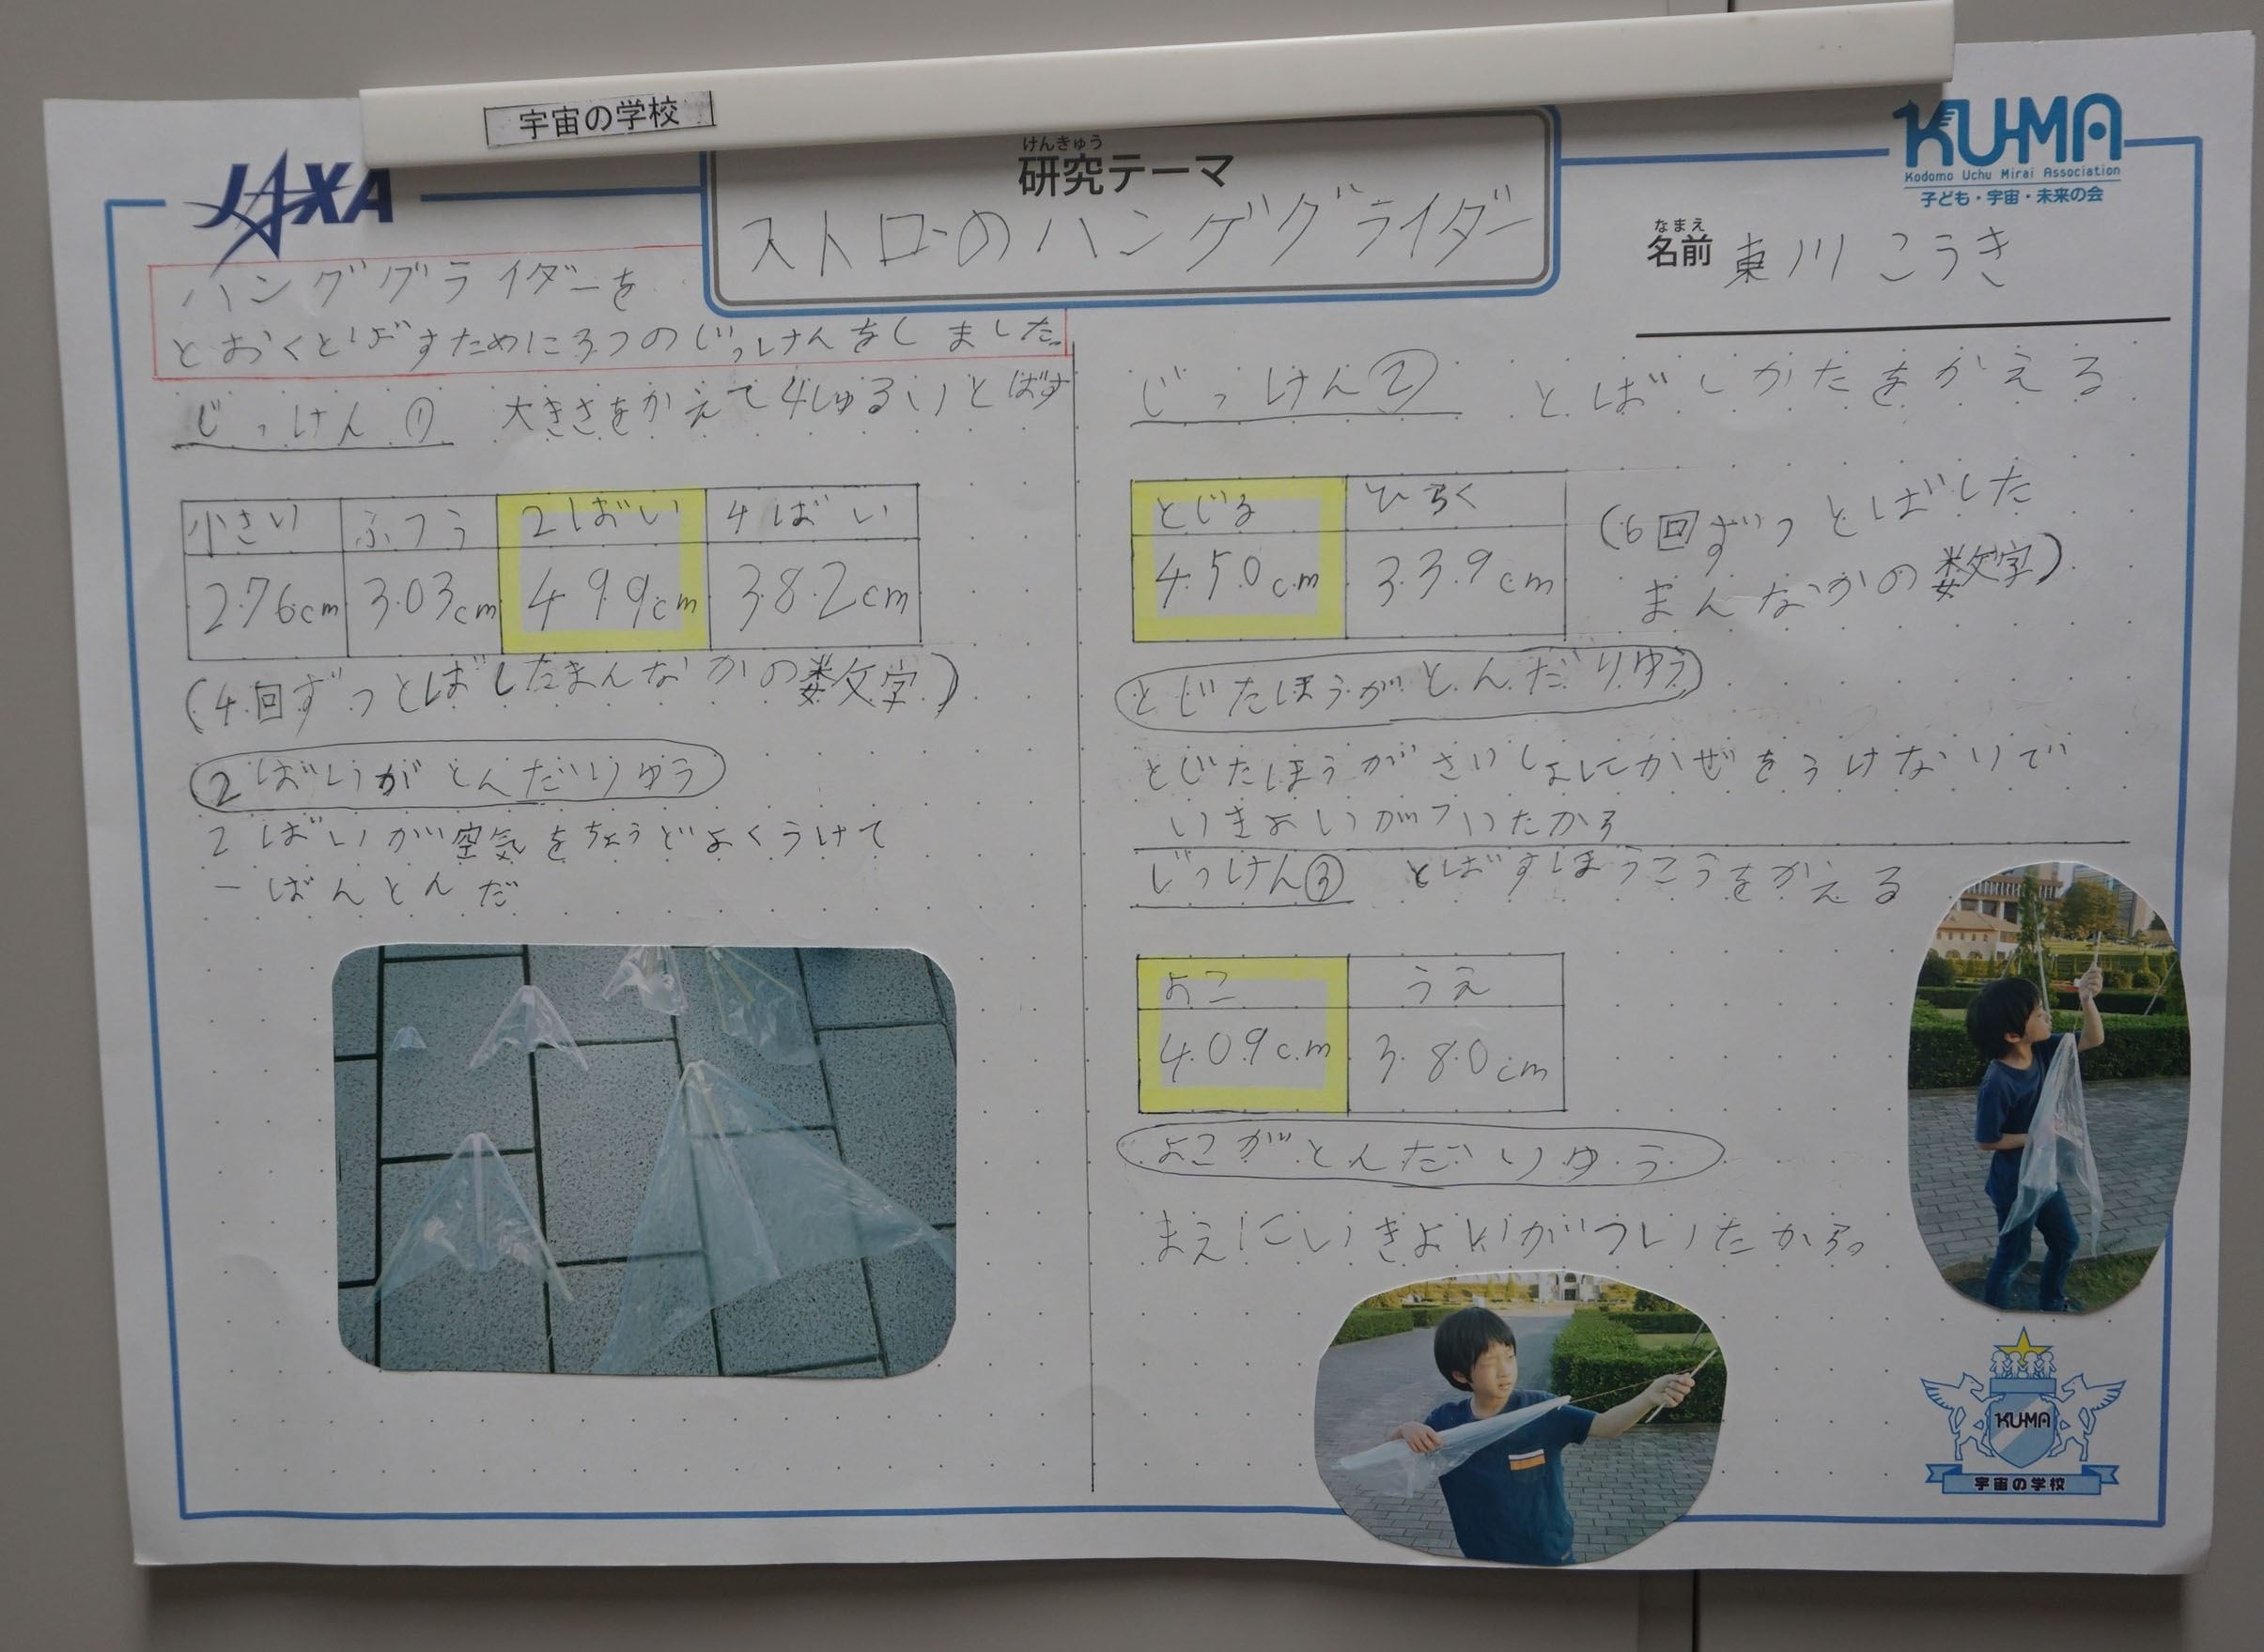 宇宙の学校
JAXA
けんきゅう
研究テーマ
ストローのハンググライダー
KU-MA
Kodomo Uchu Mirai Association
子ども・宇宙・未来の会
なまえ
名前 東川 こうき
ハンググライダーを
とおくとばすために3つのじっけんをしました。
じっけん① 大きさをかえて4しゅるいとばす
小さい ふつう 2ばい 4ばい
276cm 303cm 499cm 382cm
(4回ずつとばしたまんなかの数字)
2ばいがとんだりゆう
2ばいが空気をちょうどよくうけて
一ばんとんだ
じっけん② とばしかたをかえる
とじる ひらく
450cm 339cm
(6回ずつとばした
まんなかの数字)
とじたほうがとんだりゆう
とじたほうがさいしょしてかぜをうけないで
いきよいがついたから
じっけん③ とばすほうこうをかえる
よこ うえ
409cm 380cm
よこがとんだりゆう
まえにいきよいがついたから。
KU-MA
宇宙の学校